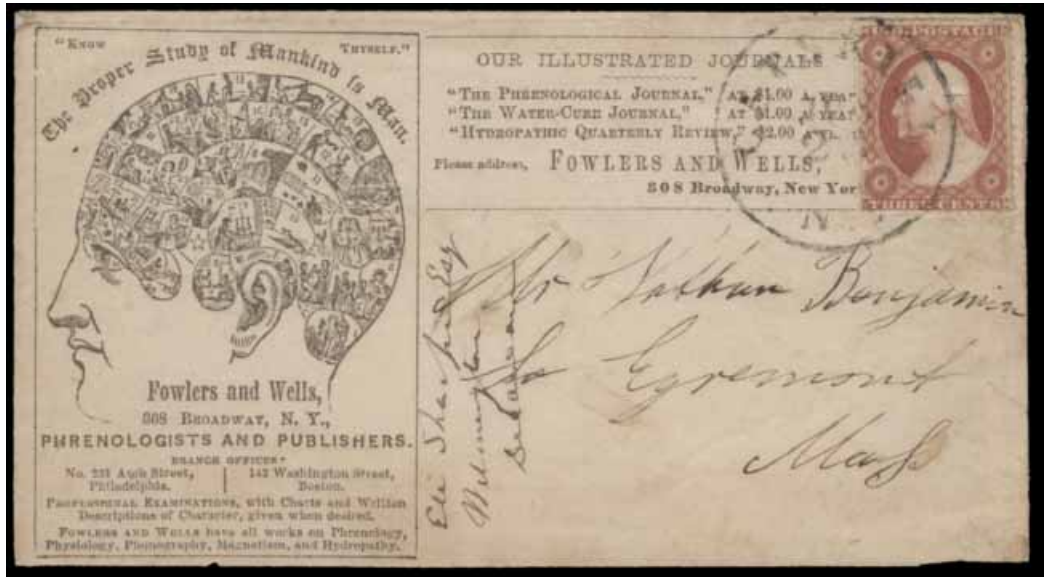 "Know Thyself."
The Proper Study of Mankind is Man.
Fowlers and Wells,
308 Broadway, N. Y.,
PHRENOLOGISTS AND PUBLISHERS.
BRANCH OFFICES:
No. 231 Arch Street, Philadelphia.
142 Washington Street, Boston.
Professional Examinations, with Charts and Written
Descriptions of Character, given when desired.
Fowlers and Wells have all works on Phrenology,
Physiology, Phonography, Magnetism, and Hydropathy.
OUR ILLUSTRATED JOURNALS
"The Phrenological Journal," at $1.00 a year
"The Water-Cure Journal," at $1.00 a year
"Hydropathic Quarterly Review," $2.00 a
Please address, Fowlers and Wells,
308 Broadway, New Yor
U.S. POSTAGE
THREE CENTS
Mr Nathan Benjamin
So Egremont
Mass
Eli Sharpe Esq
Wilmington
Delaware